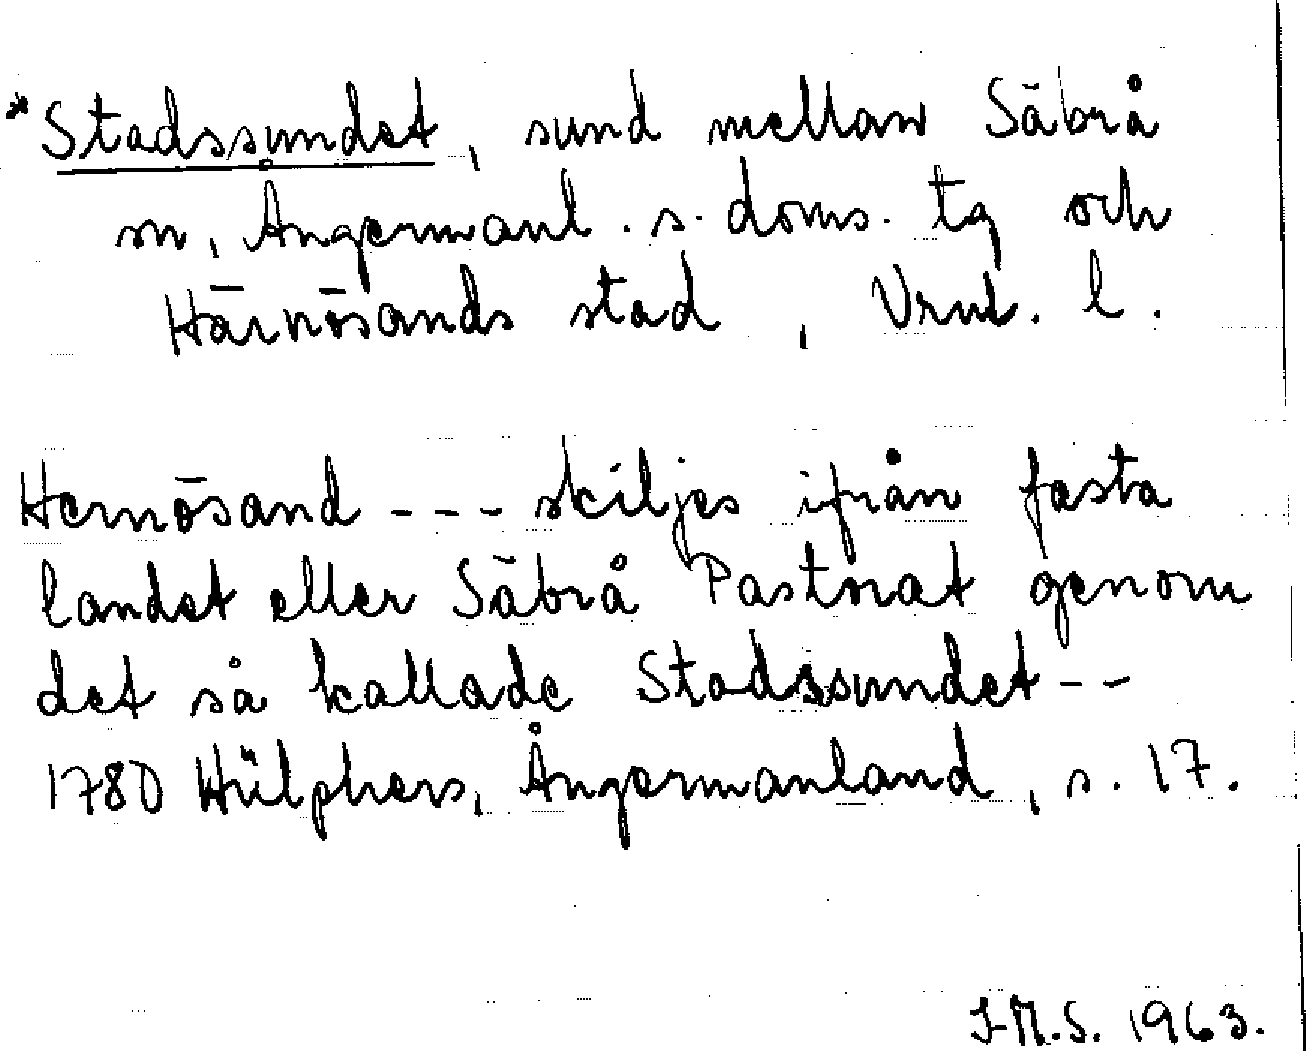 *Stadssundet, sund mellan Säbrå
sn, Ångermanl. s. doms. tg och
Härnösands stad, Vrnl. l.
Hernösand --- skiljes ifrån fasta
landet eller Säbrå Pastorat genom
det så kallade Stadssundet--
1780 Hülphers, Ångermanland, s. 17.
I-M.S. 1963.